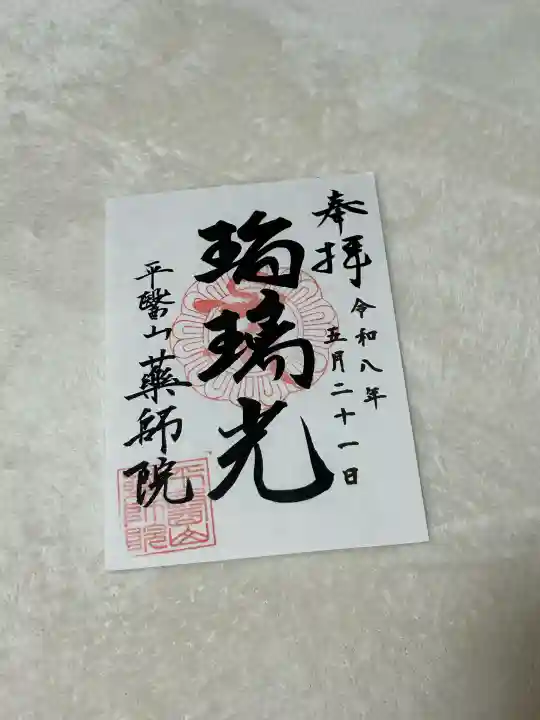 奉拝
令和八年
五月二十一日
瑠璃光
平醫山
藥師院